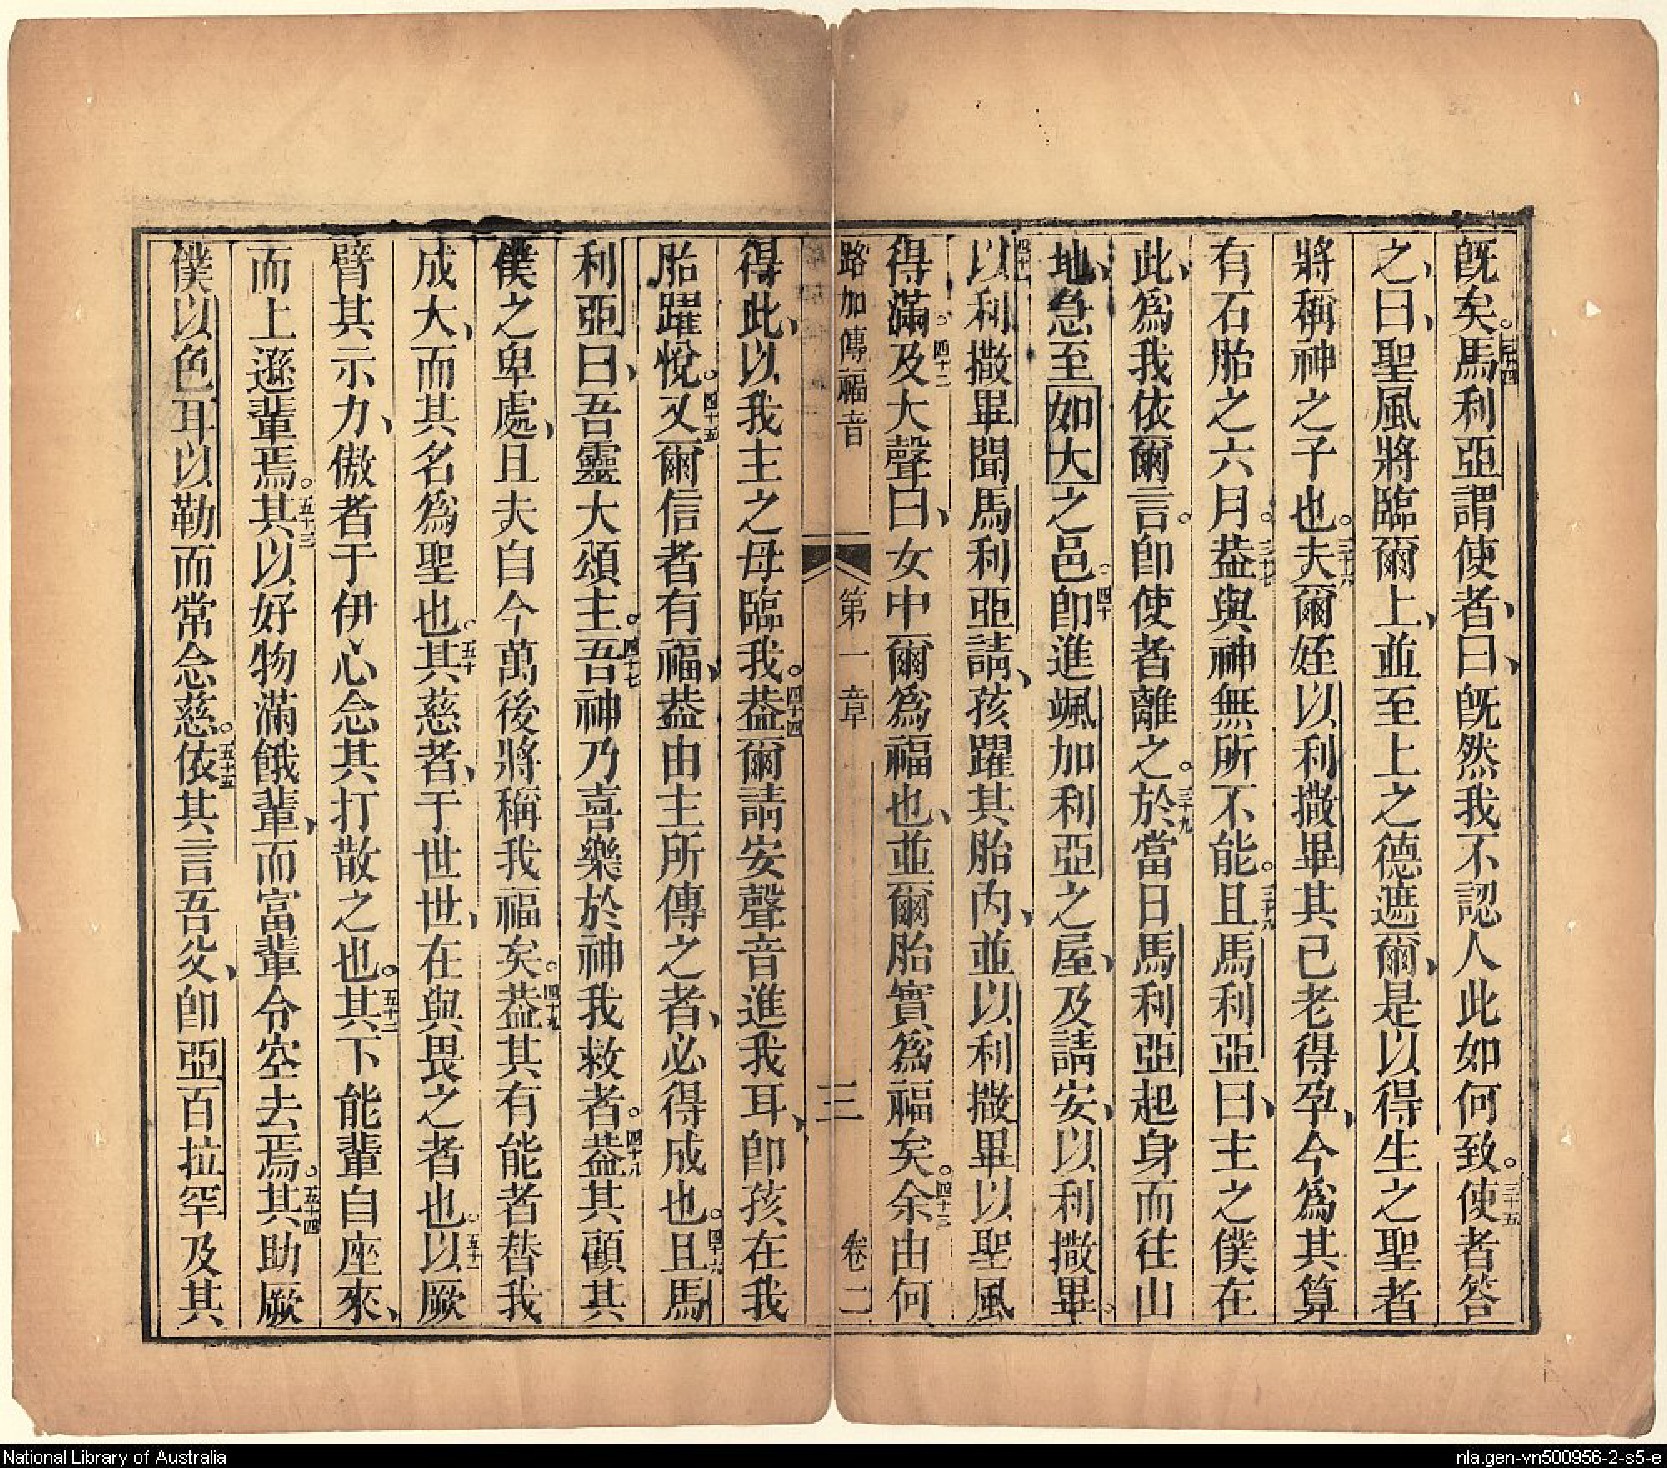 旣矣。三十四馬利亞謂使者、曰、旣然我不認人此如何致。三十五使者答
之、曰、聖風將臨爾上、並至上之德遮爾、是以得生之聖者
將稱神之子也。三十六夫爾姪以利撒畢其已老得孕、今爲其算
有石胎之六月。三十七葢與神無所不能。三十八且馬利亞曰、主之僕在
此、爲我依爾言。卽使者離之。三十九於當日馬利亞起身而往山
地、急至如大之邑。四十卽進颯加利亞之屋、及請安、以利撒畢。
四十一以利撒畢聞馬利亞請、孩躍其胎內、並以利撒畢以聖風
得滿。四十二及大聲曰、女中爾爲福也、並爾胎實爲福矣。四十三余由何
路加傳福音 第一章 三 卷二
得此、以我主之母臨我。四十四葢爾請安聲音進我耳、卽孩在我
胎躍悅。四十五又爾信者有福、葢由主所傳之者、必得成也。四十六且馬
利亞曰、吾靈大頌主。四十七吾神乃喜樂於神我救者。四十八葢其顧其
僕之卑處、且夫自今萬後將稱我福矣。四十九葢其有能者替我
成大、而其名爲聖也。五十其慈者、于世世、在與畏之者也。五十一以厥
臂其示力、傲者于伊心念其打散之也。五十二其下能輩自座來、
而上遜輩焉。五十三其以好物滿餓輩、而富輩令空去焉。五十四其助厥
僕以色耳以勒而常念慈。五十五依其言吾父、卽亞百拉罕及其
National Library of Australia
nla.gen-vn500956-2-s5-e